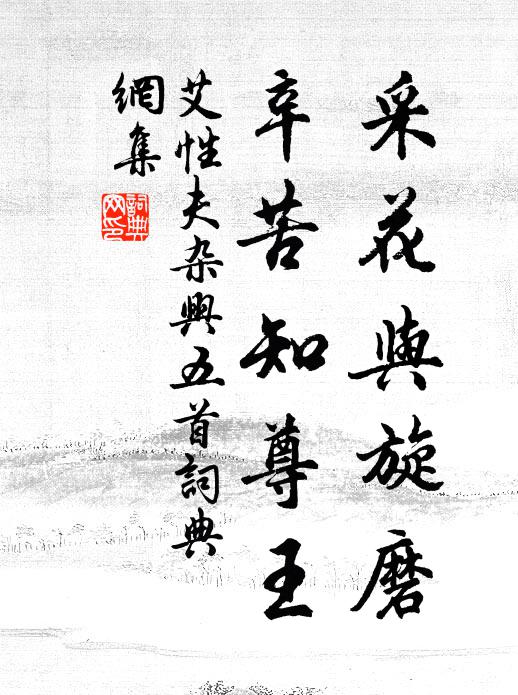 采花與旋磨
辛苦知尊王
艾性夫杂興五首詞典
網集
詞典
网印